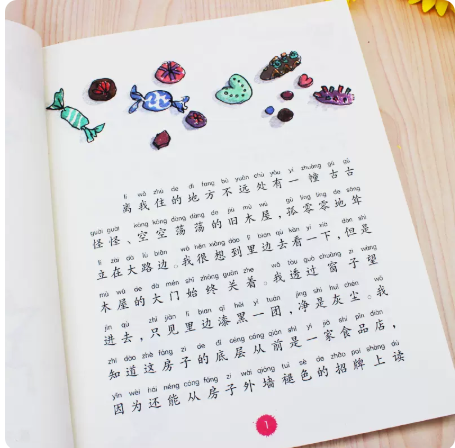 lí wǒ zhù de dì fang bù yuǎn chù yǒu yí zhuàng gǔ gǔ
离我住的地方不远处有一幢古古
guài guài kōng kōng dàng dàng de jiù mù wū gū líng líng de sǒng
怪怪、空空荡荡的旧木屋,孤零零地耸
lì zài dà lù biān wǒ hěn xiǎng dào lǐ bian qù kàn yí xià dàn shì
立在大路边。我很想到里边去看一下,但是
mù wū de dà mén shǐ zhōng guān zhe wǒ tòu guò chuāng zi wàng
木屋的大门始终关着。我透过窗子望
jìn qù zhǐ jiàn lǐ bian qī hēi yì tuán jìng shì huī chén wǒ
进去,只见里边漆黑一团,净是灰尘。我
zhī dào zhè fáng zi de dǐ céng cóng qián shì yì jiā shí pǐn diàn
知道这房子的底层从前是一家食品店,
yīn wèi hái néng cóng fáng zi wài qiáng tuì sè de zhāo pai shang dú
因为还能从房子外墙褪色的招牌上读
1